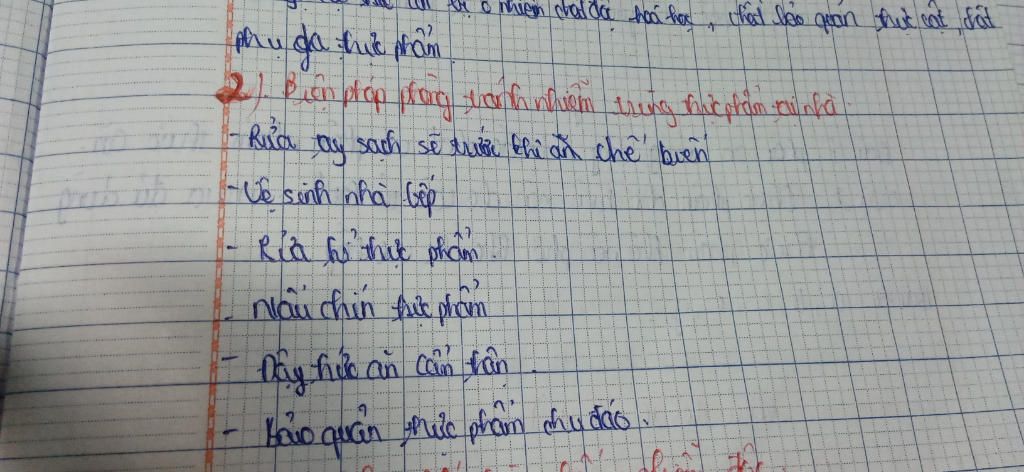 ô nhiễm chất độc hoá học, chất bảo quản thực vật, chất
phụ gia thực phẩm
2). Biện pháp phòng tránh nhiễm trùng thực phẩm tại nhà
- Rửa tay sạch sẽ trước khi ăn chế biến
- Vệ sinh nhà bếp
- Rửa kĩ thực phẩm.
- Nấu chín thực phẩm
- Đậy thức ăn cẩn thận.
- Bảo quản thực phẩm chu đáo.